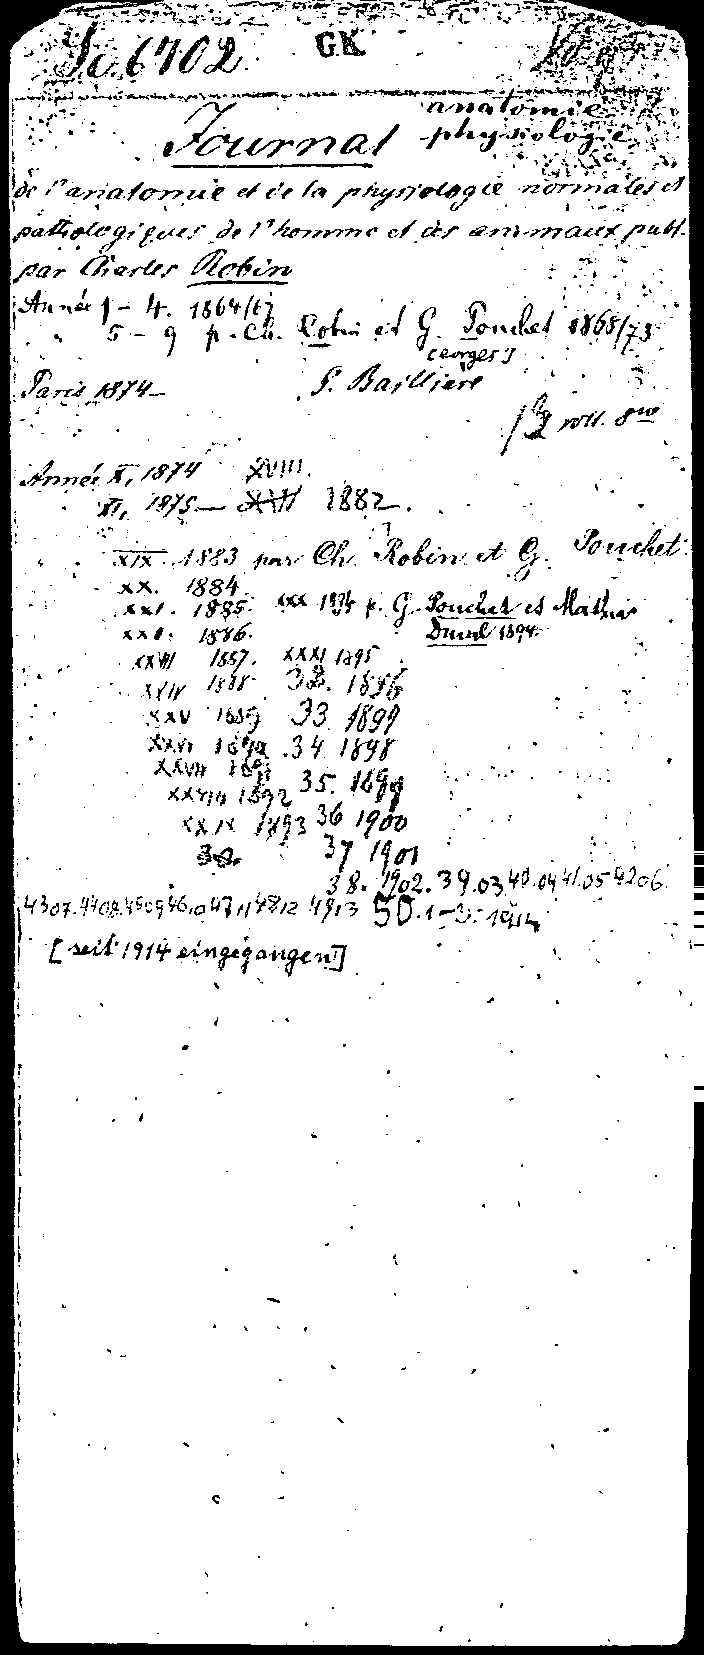 6702 GK
anatomie
Journal physiologie
de l'anatomie et de la physiologie normales et
pathologiques de l'homme et des animaux publ.
par Charles Robin
Année 1-4. 1864/67
" 5-9 p. Ch. Robin et G. Pouchet 1868/73
Georges]
Paris 1874- G. Baillière
voll. 8vo
Année X, 1874 XVIII.
XI, 1875- 1882.
XIX 1883 par Ch. Robin et G. Pouchet
XX. 1884
XXI. 1885. XXX 1894 p. G. Pouchet et Mathias
XXII. 1886. Duval 1894.
XXIII 1887. XXXI 1895
XXIV 1888 32. 1896
XXV 1889 33 1897
XXVI 1890 34 1898
XXVII 1891 35. 1899
XXVIII 1892 36 1900
XXIX 1893 37 1901
30. 38. 1902. 39.03 40.04 41.05 42 06.
43 07. 44 08. 45 09 46.10 47 11 48 12 49 13 50. 1-3. 1914
[seit 1914 eingegangen]